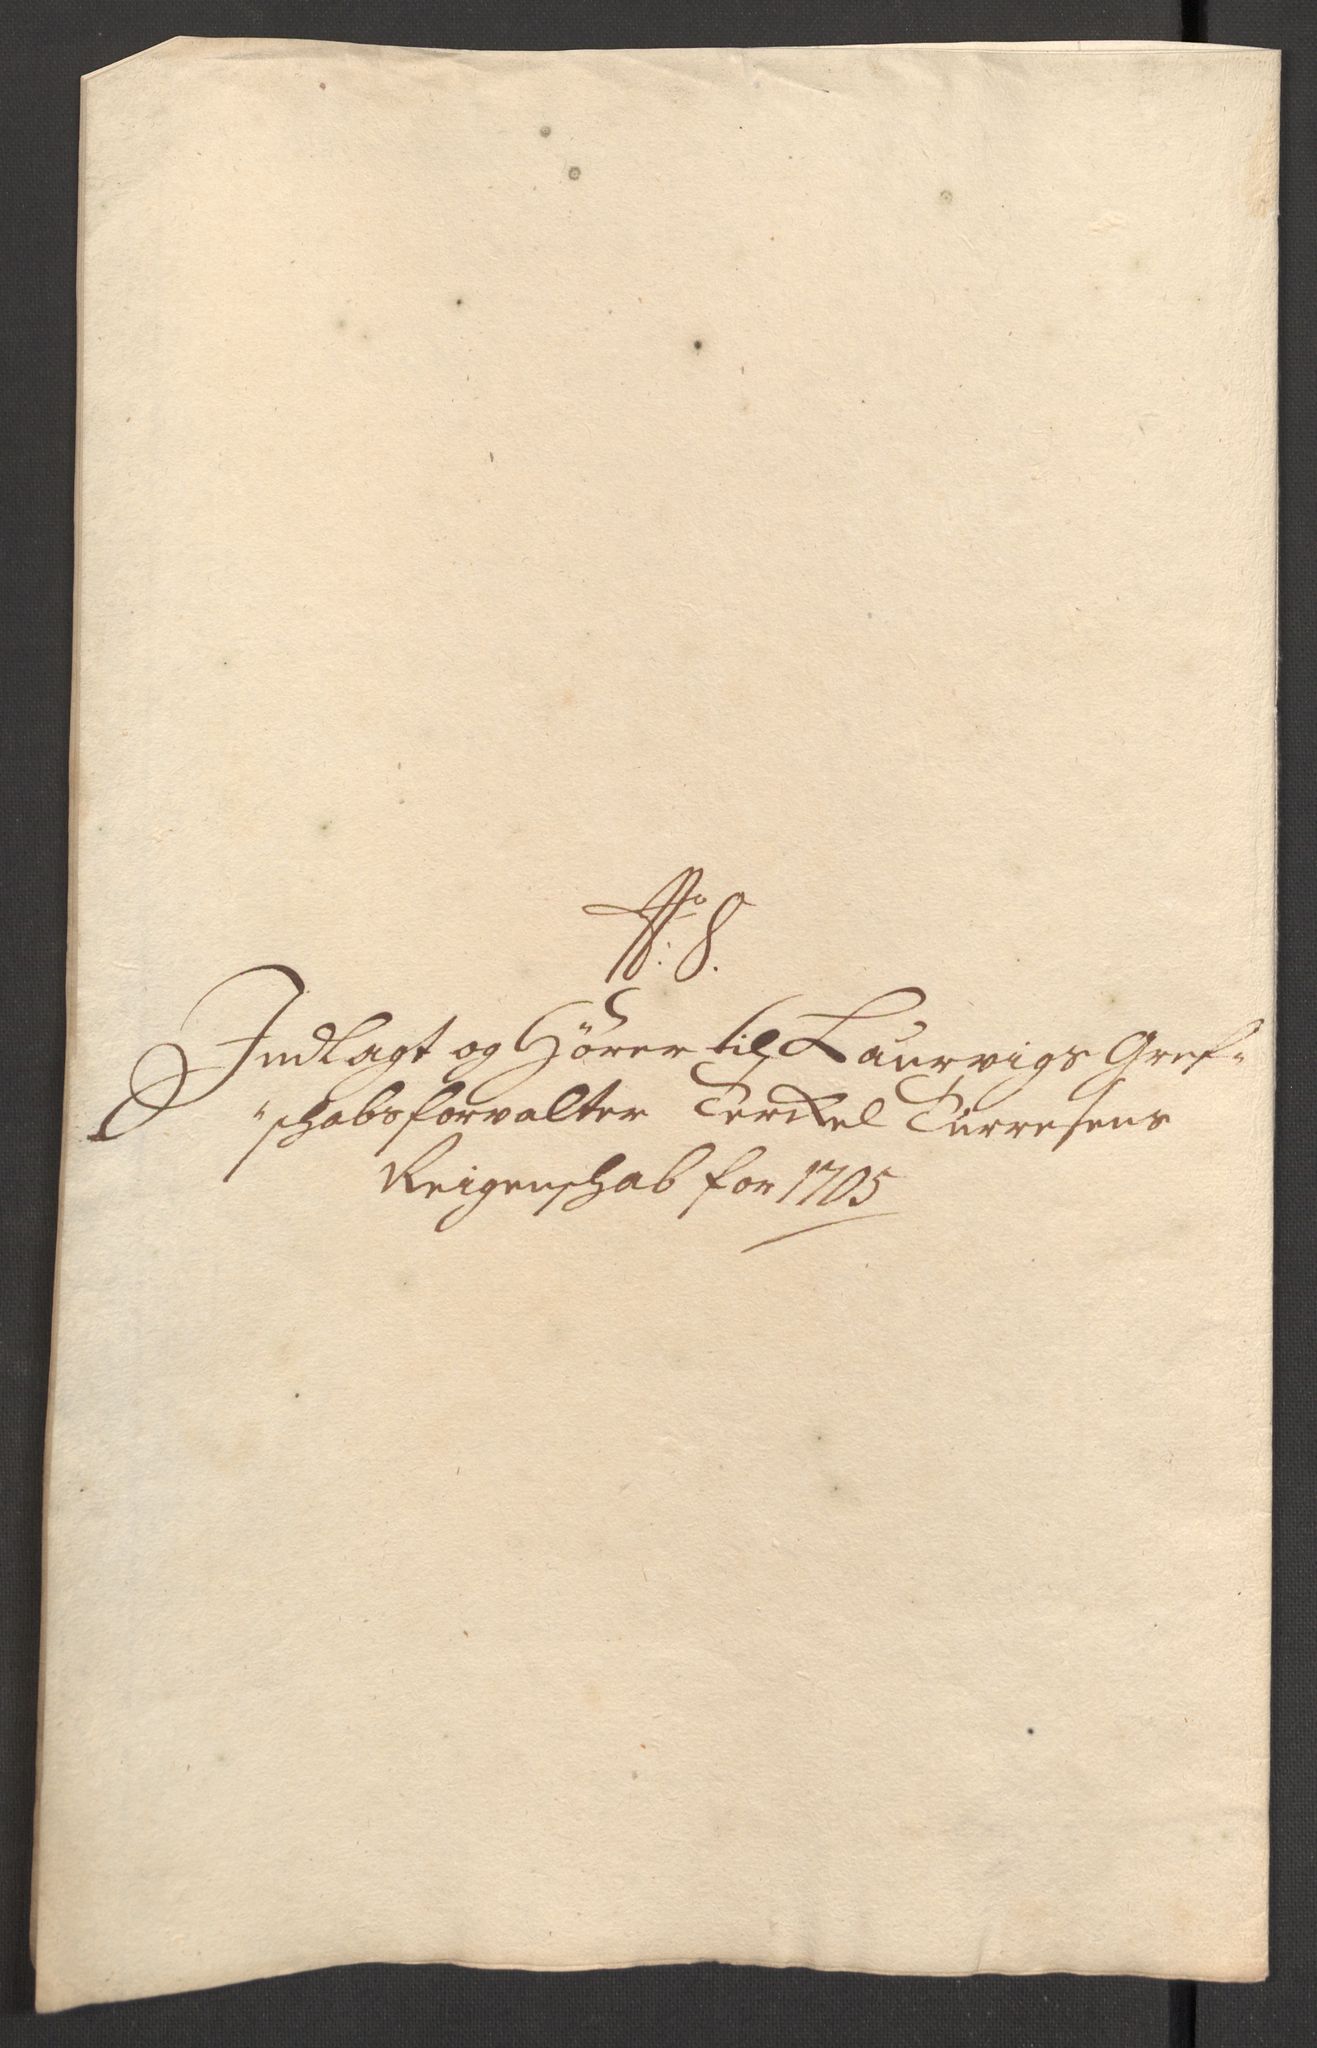 No: 8.
Indlagt og Hörer til Laurvigs Gref-
schabsforvalter Terchel Turresens
Reigenschab for 1705